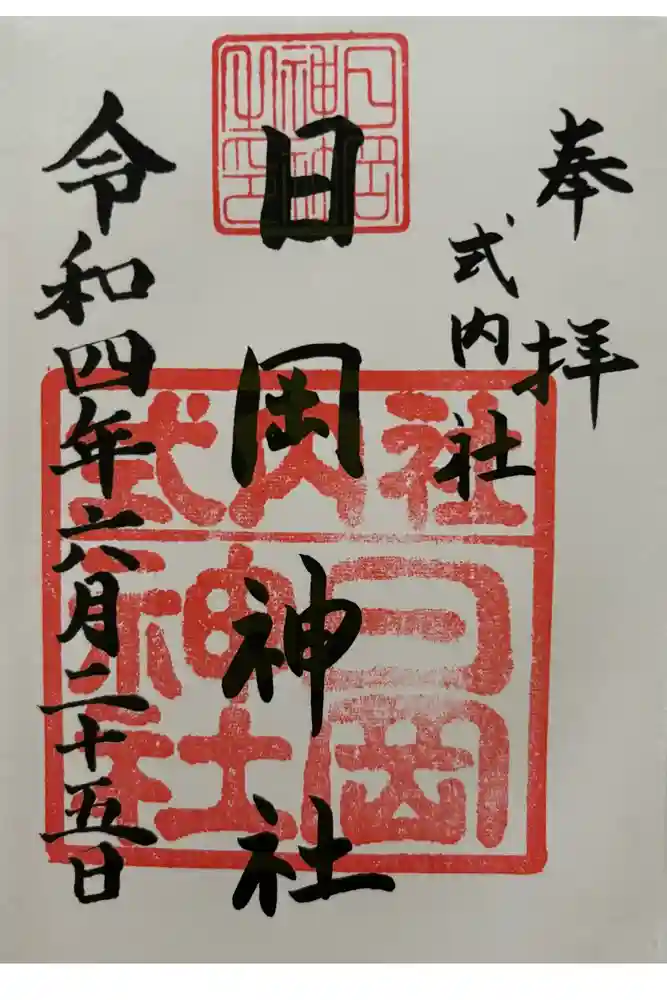 奉拝
式内社
日岡神社
令和四年六月二十五日
日岡
神社
之印
式内社
日岡
神社